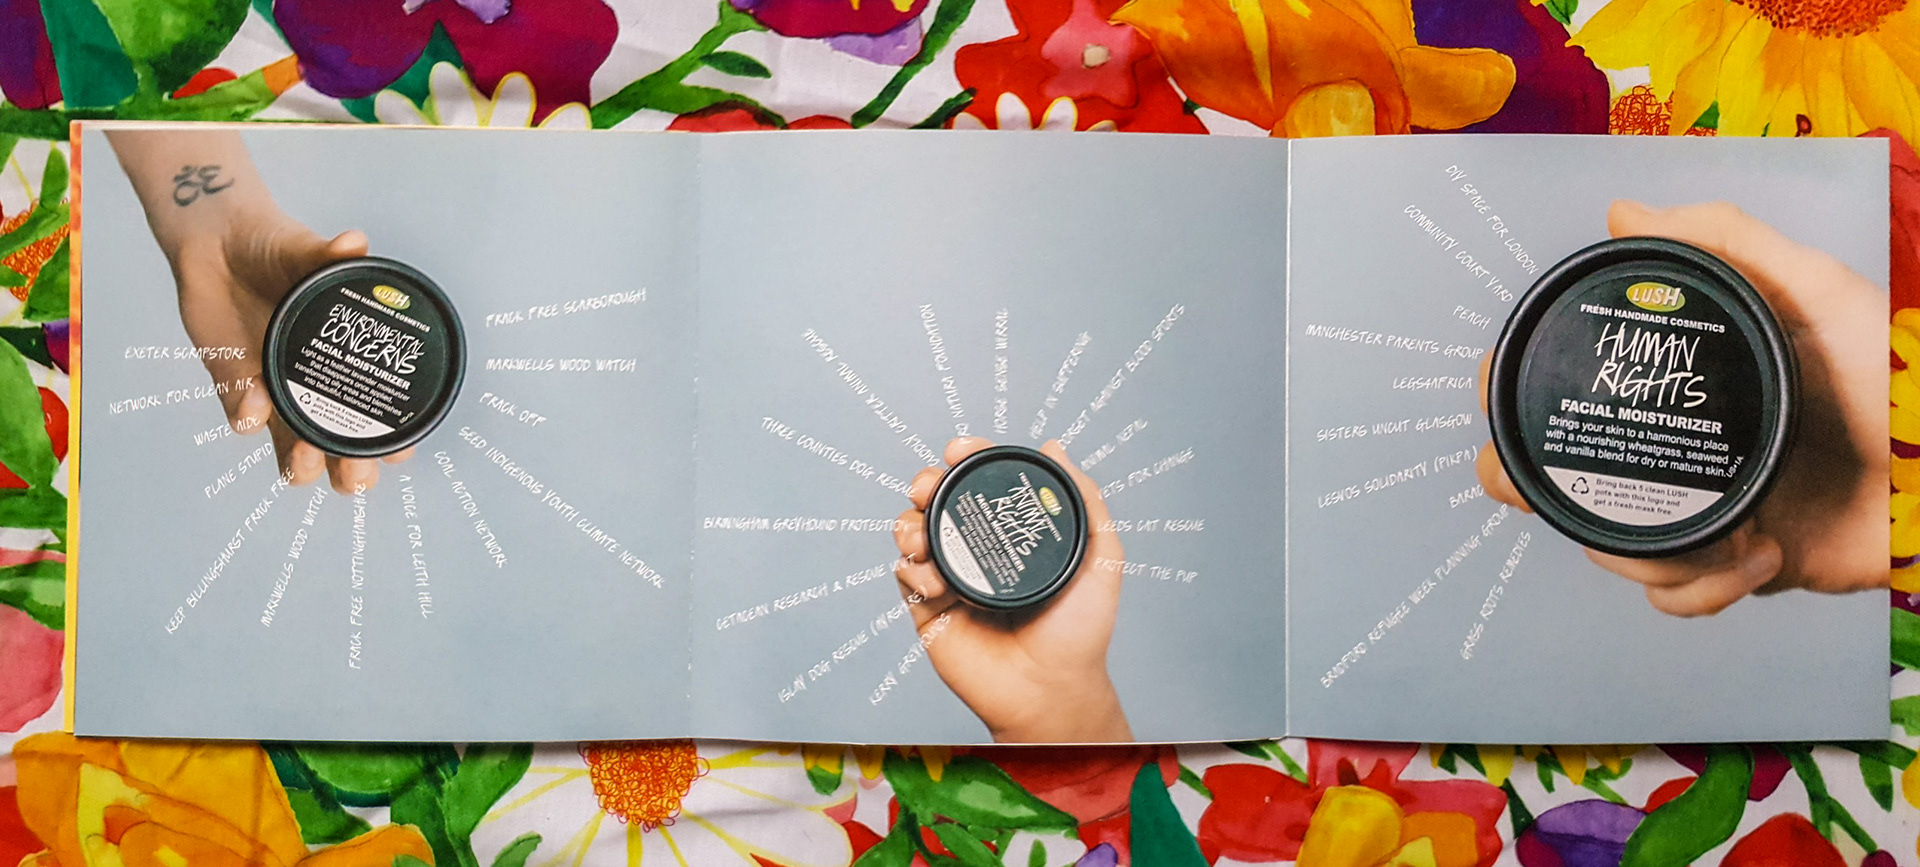 EXETER SCRAPSTORE
NETWORK FOR CLEAN AIR
WASTE AIDE
PLANE STUPID
KEEP BILLINGSHURST FRACK FREE
MARKWELLS WOOD WATCH
FRACK FREE NOTTINGHAMSHIRE
A VOICE FOR LEITH HILL
COAL ACTION NETWORK
SEED INDIGENOUS YOUTH CLIMATE NETWORK
FRACK OFF
MARKWELLS WOOD WATCH
FRACK FREE SCARBOROUGH
LUSH
FRESH HANDMADE COSMETICS
ENVIRONMENTAL
CONCERNS
FACIAL MOISTURIZER
Light as a feather lavender moisturizer
that disappears once applied,
transforming oily areas and blemishes
into beautiful, balanced skin.
Bring back 5 clean LUSH
pots with this logo and
get a fresh mask free.
KERRY GREYHOUNDS
ISLAY DOG RESCUE
CETACEAN RESEARCH & RESCUE UNIT
BIRMINGHAM GREYHOUND PROTECTION
THREE COUNTIES DOG RESCUE
GOODLY CRITTER ANIMAL RESCUE
NATURE FOUNDATION
HORSE SENSE WIRRAL
HELP IN SUFFERING
AGAINST BLOOD SPORTS
ANIMAL NEPAL
VETS FOR CHANGE
LEEDS CAT RESCUE
PROTECT THE PUP
LUSH
ANIMAL
RIGHTS
FACIAL MOISTURIZER
DIY SPACE FOR LONDON
COMMUNITY COURT YARD
PEACH
MANCHESTER PARENTS GROUP
LEGS4AFRICA
SISTERS UNCUT GLASGOW
LESVOS SOLIDARITY (PIKPA)
BARAC
BRADFORD REFUGEE WEEK PLANNING GROUP
GRASS ROOTS REMEDIES
LUSH
FRESH HANDMADE COSMETICS
HUMAN
RIGHTS
FACIAL MOISTURIZER
Brings your skin to a harmonious place
with a nourishing wheatgrass, seaweed
and vanilla blend for dry or mature skin.
Bring back 5 clean LUSH
pots with this logo and
get a fresh mask free.